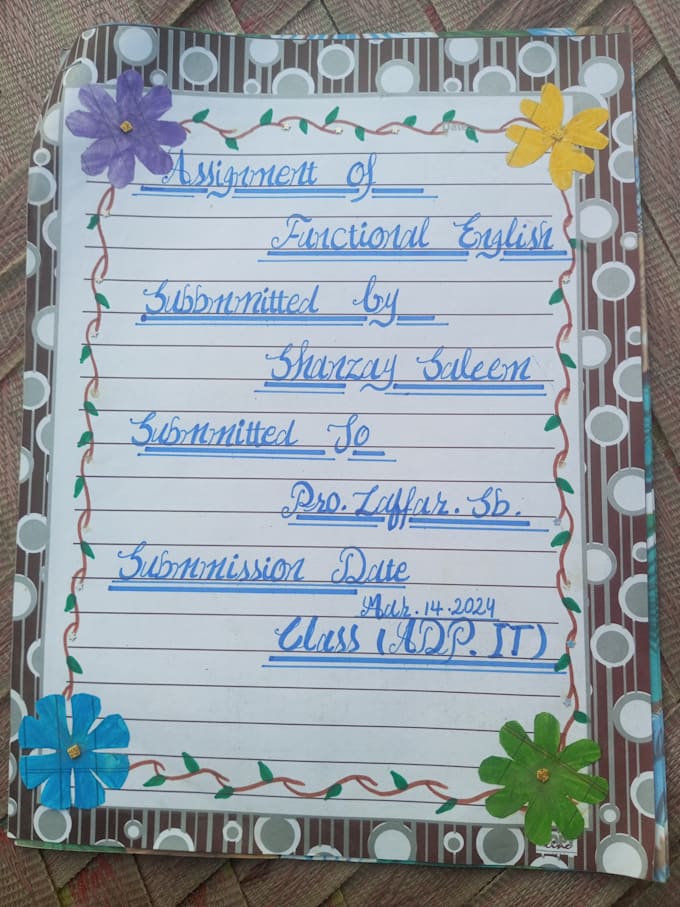 Date
Assignment of
Functional English
Subbmitted by
Shanzay Saleem
Submitted To
Pro. Zaffar. Sb.
Submission Date
Mar. 14. 2024
Class (ADP. IT)